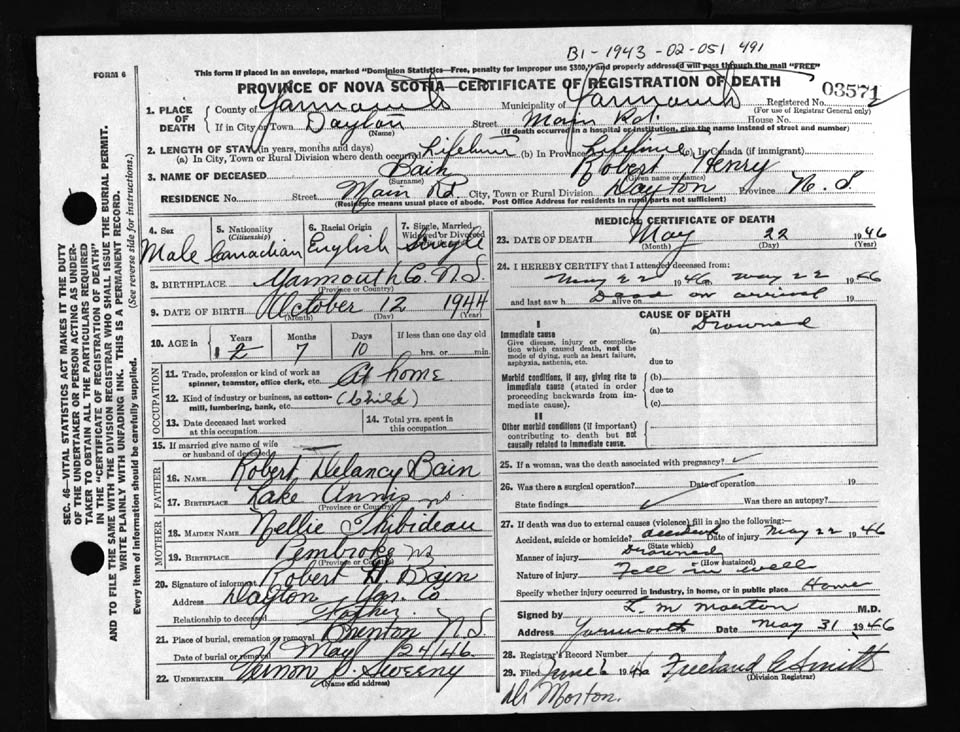 B1-1943-02-051 491
FORM 6
This form if placed in an envelope, marked "Dominion Statistics—Free, penalty for improper use $300," and properly addressed will pass through the mail "FREE"
PROVINCE OF NOVA SCOTIA—CERTIFICATE OF REGISTRATION OF DEATH
03571
1. PLACE OF DEATH
County of Yarmouth Municipality of Yarmouth Registered No.
(For use of Registrar General only)
If in City or Town Dayton Street Main Rd. House No.
(Name) (If death occurred in a hospital or institution, give the name instead of street and number)
2. LENGTH OF STAY (in years, months and days)
(a) In City, Town or Rural Division where death occurred Lifetime (b) In Province Lifetime (c) In Canada (if immigrant)
3. NAME OF DECEASED Bain Robert Henry
(Surname) (Given name or names)
RESIDENCE No. Street Main Rd City, Town or Rural Division Dayton Province N. S
(Residence means usual place of abode. Post Office Address for residents in rural parts not sufficient)
4. Sex Male
5. Nationality (Citizenship) Canadian
6. Racial Origin English
7. Single, Married, Widowed or Divorced Single
8. BIRTHPLACE Yarmouth Co. N.S.
(Province or Country)
9. DATE OF BIRTH October 12 1944
(Month) (Day) (Year)
10. AGE in Years Months Days If less than one day old
2 7 10 hrs. or min.
OCCUPATION
11. Trade, profession or kind of work as spinner, teamster, office clerk, etc. At home
12. Kind of industry or business, as cotton-mill, lumbering, bank, etc. (Child)
13. Date deceased last worked at this occupation
14. Total yrs. spent in this occupation
15. If married give name of wife or husband of deceased
FATHER
16. NAME Robert Delancy Bain
17. BIRTHPLACE Lake Annis NS
(Province or Country)
MOTHER
18. MAIDEN NAME Nellie Thibideau
19. BIRTHPLACE Pembroke NS
(Province or Country)
20. Signature of informant Robert D. Bain
Address Dayton Yar. Co
Relationship to deceased Father.
21. Place of burial, cremation or removal Brenton N.S.
Date of burial or removal May 24/46
22. UNDERTAKER Vernon J. Sweeny
(Name and address)
MEDICAL CERTIFICATE OF DEATH
23. DATE OF DEATH May 22 1946
(Month) (Day) (Year)
24. I HEREBY CERTIFY that I attended deceased from:
May 22 1946 to May 22 1946
and last saw h alive on Dead on arrival 19
CAUSE OF DEATH
I
Immediate cause (a) Drowned
Give disease, injury or complication which caused death, not the mode of dying, such as heart failure, asphyxia, asthenia, etc.
due to
Morbid conditions, if any, giving rise to immediate cause (stated in order proceeding backwards from immediate cause).
(b)
due to
(c)
II
Other morbid conditions (if important) contributing to death but not causally related to immediate cause.
25. If a woman, was the death associated with pregnancy?
26. Was there a surgical operation? Date of operation 19
State findings Was there an autopsy?
27. If death was due to external causes (violence) fill in also the following:—
Accident, suicide or homicide? accident Date of injury May 22 1946
(State which)
Manner of injury Drowned
(How sustained)
Nature of injury Fell in well
Specify whether injury occurred in Industry, in home, or in public place Home
Signed by L. M Morton M.D.
Address Yarmouth Date May 31 1946
28. Registrar's Record Number
29. Filed June 6 1946 Freeland C Smith
(Division Registrar)
Dr Morton.
SEC. 46—VITAL STATISTICS ACT MAKES IT THE DUTY
OF THE UNDERTAKER OR PERSON ACTING AS UNDERTAKER TO OBTAIN ALL THE PARTICULARS REQUIRED
IN THE "CERTIFICATE OF REGISTRATION OF DEATH"
AND TO FILE THE SAME WITH THE DIVISION REGISTRAR WHO SHALL ISSUE THE BURIAL PERMIT.
WRITE PLAINLY WITH UNFADING INK. THIS IS A PERMANENT RECORD.
Every item of information should be carefully supplied. (See reverse side for instructions.)